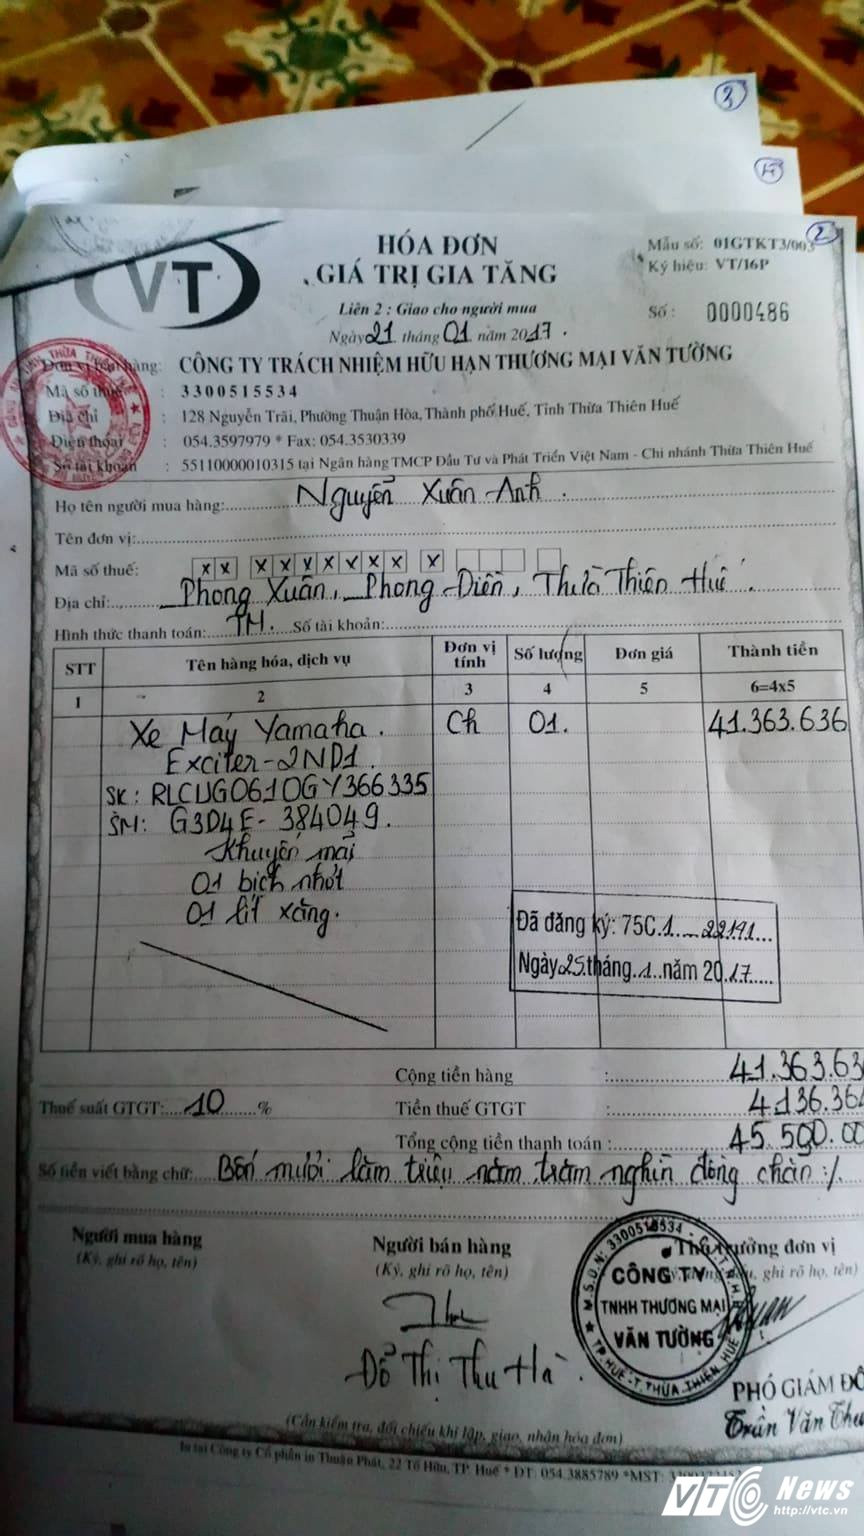 3
2
VT
HÓA ĐƠN
GIÁ TRỊ GIA TĂNG
Liên 2 : Giao cho người mua
Ngày 21 tháng 01 năm 2017.
Mẫu số: 01GTKT3/003
Ký hiệu: VT/16P
Số : 0000486
Đơn vị bán hàng: CÔNG TY TRÁCH NHIỆM HỮU HẠN THƯƠNG MẠI VĂN TƯỜNG
Mã số thuế : 3300515534
Địa chỉ : 128 Nguyễn Trãi, Phường Thuận Hòa, Thành phố Huế, Tỉnh Thừa Thiên Huế
Điện thoại : 054.3597979 * Fax: 054.3530339
Số tài khoản : 55110000010315 tại Ngân hàng TMCP Đầu Tư và Phát Triển Việt Nam - Chi nhánh Thừa Thiên Huế
Họ tên người mua hàng: Nguyễn Xuân Anh.
Tên đơn vị:
Mã số thuế: x x x x x x x x x x
Địa chỉ: Phong Xuân, Phong Điền, Thừa Thiên Huế.
Hình thức thanh toán: TM. Số tài khoản:
STT Tên hàng hóa, dịch vụ Đơn vị tính Số lượng Đơn giá Thành tiền
1 2 3 4 5 6=4x5
Xe Máy Yamaha. Ch 01. 41.363.636
Exciter-2ND1.
SK: RLCUG0610GY366335
SM: G3D4E-384049.
Khuyến mãi
01 bịch nhớt
01 lít xăng.
Đã đăng ký: 75C.1 22191
Ngày 25 tháng 1 năm 2017
Cộng tiền hàng : 41.363.63
Thuế suất GTGT: 10 % Tiền thuế GTGT : 4.136.364
Tổng cộng tiền thanh toán : 45.500.00
Số tiền viết bằng chữ: Bốn mươi lăm triệu năm trăm nghìn đồng chẵn ./.
Người mua hàng Người bán hàng Thủ trưởng đơn vị
(Ký, ghi rõ họ, tên) (Ký, ghi rõ họ, tên) ghi rõ họ, tên)
M.S.D.N: 3300515534 - C.T.T.N.H.H
CÔNG TY
TNHH THƯƠNG MẠI
VĂN TƯỜNG
TP HUẾ - T. THỪA THIÊN HUẾ
Đỗ Thị Thu Hà.
PHÓ GIÁM ĐỐ
Trần Văn Thu
(Cần kiểm tra, đối chiếu khi lập, giao, nhận hóa đơn)
In tại Công ty Cổ phần in Thuận Phát, 22 Tố Hữu, TP. Huế * ĐT: 054.3885789 *MST:
VTC News
http://vtc.vn